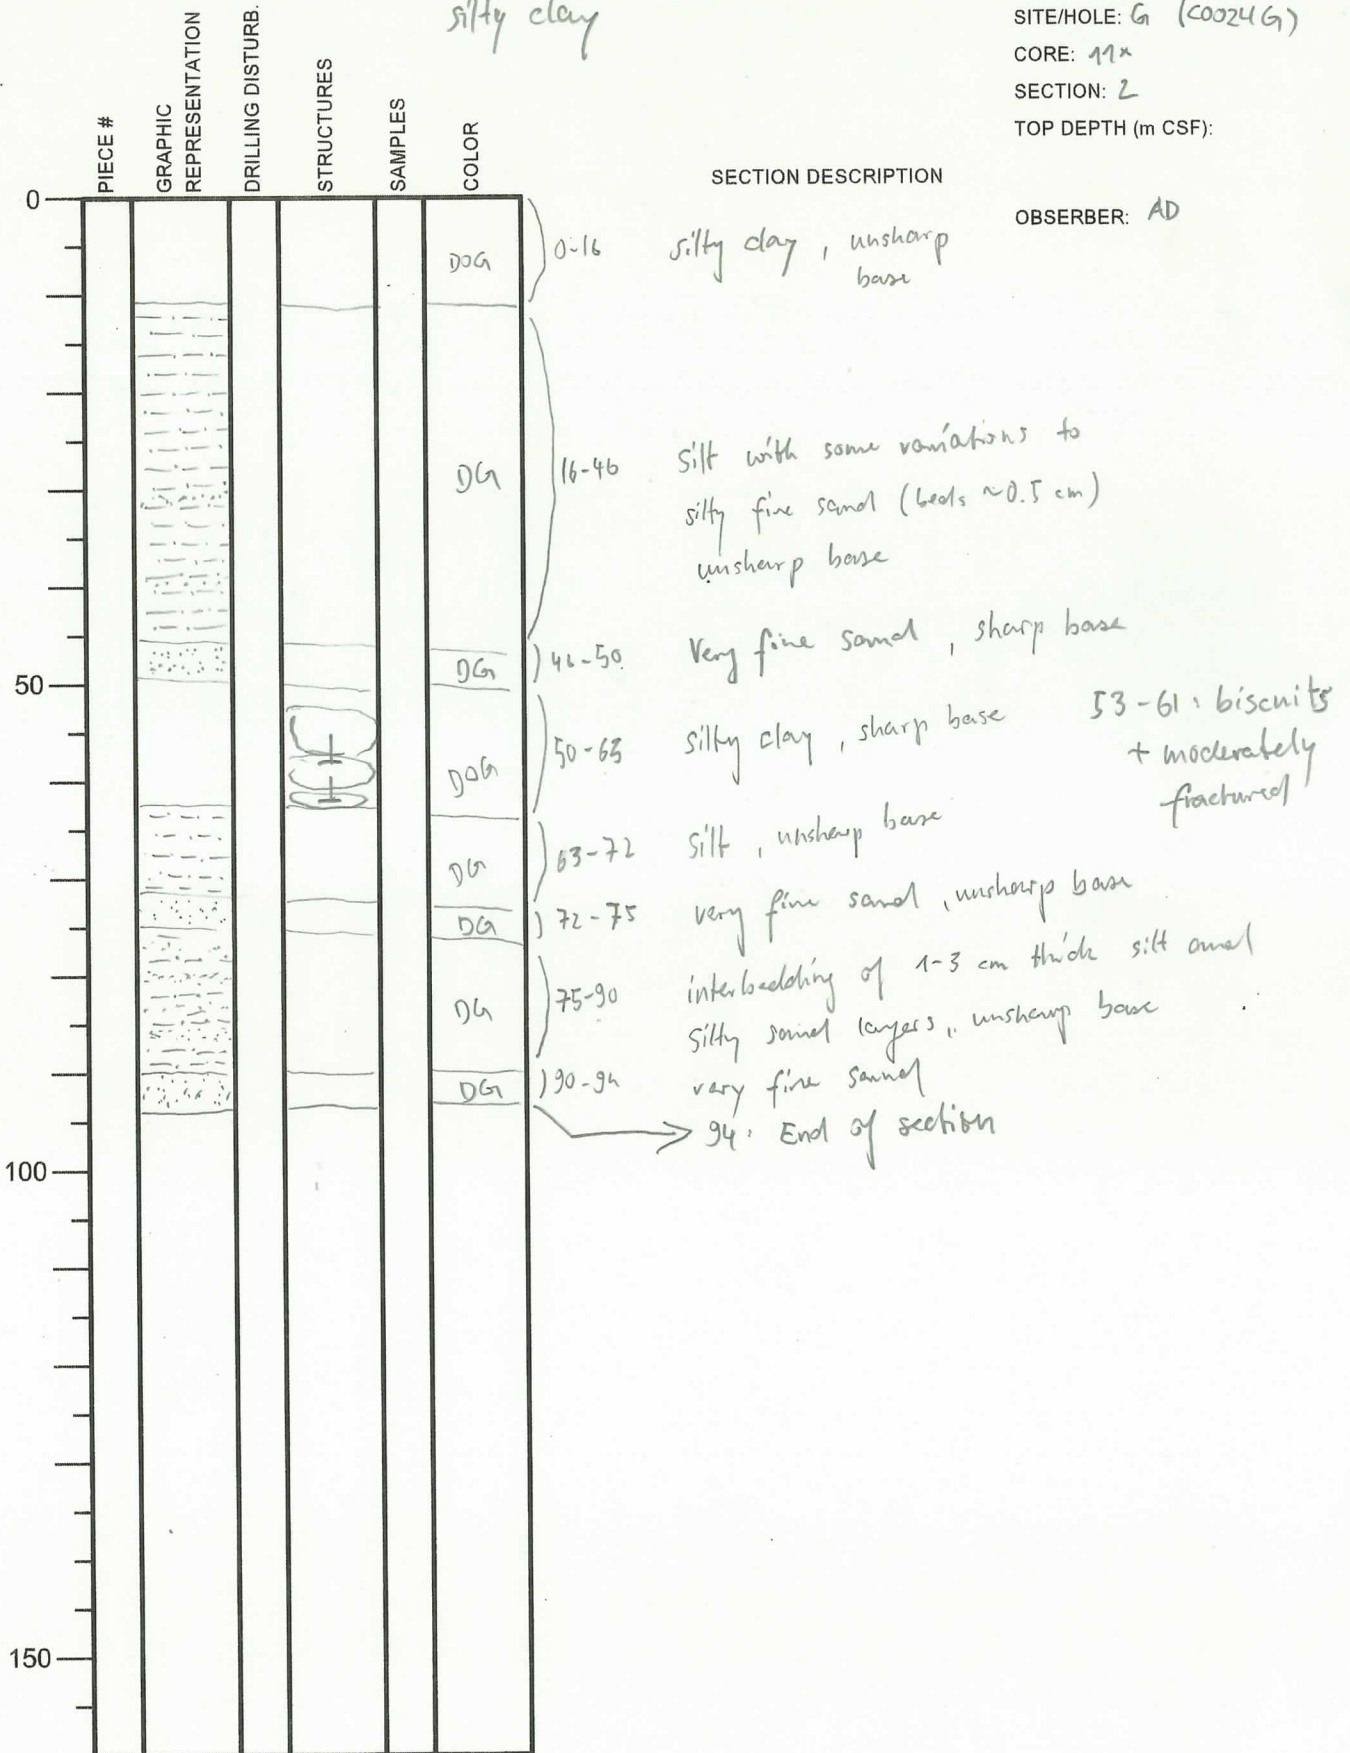 silty clay
SITE/HOLE: G (C0024G)
CORE: 11x
SECTION: 2
TOP DEPTH (m CSF):
PIECE #
GRAPHIC
REPRESENTATION
DRILLING DISTURB.
STRUCTURES
SAMPLES
COLOR
SECTION DESCRIPTION
OBSERBER: AD
0
DOG 0-16 silty clay, unsharp
base
DG 16-46 Silt with some variations to
silty fine sand (beds ~0.5 cm)
unsharp base
DG 46-50 Very fine sand, sharp base
50
DOG 50-63 silty clay, sharp base
53-61: biscuits
+ moderately
fractured
DG 63-72 Silt, unsharp base
DG 72-75 very fine sand, unsharp base
DG 75-90 interbedding of 1-3 cm thick silt and
Silty sand layers, unsharp base
DG 90-94 very fine sand
94: End of section
100
150